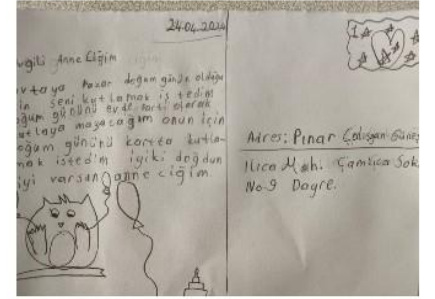 24.04.2024
vgili Anne Ciğim
ftaya Pazar doğum günün olduğu
in seni kutlamak istedim
oğum gününü evde parti olarak
utlaya mayacağım onun için
oğum gününü kartta kutla-
mak istedim iyiki doğdun
iyi varsan anne ciğim.
Adres: Pınar Çalışgan Güneş
Ilıca Mah. Çamlıca Sok
No-9 Dayre.